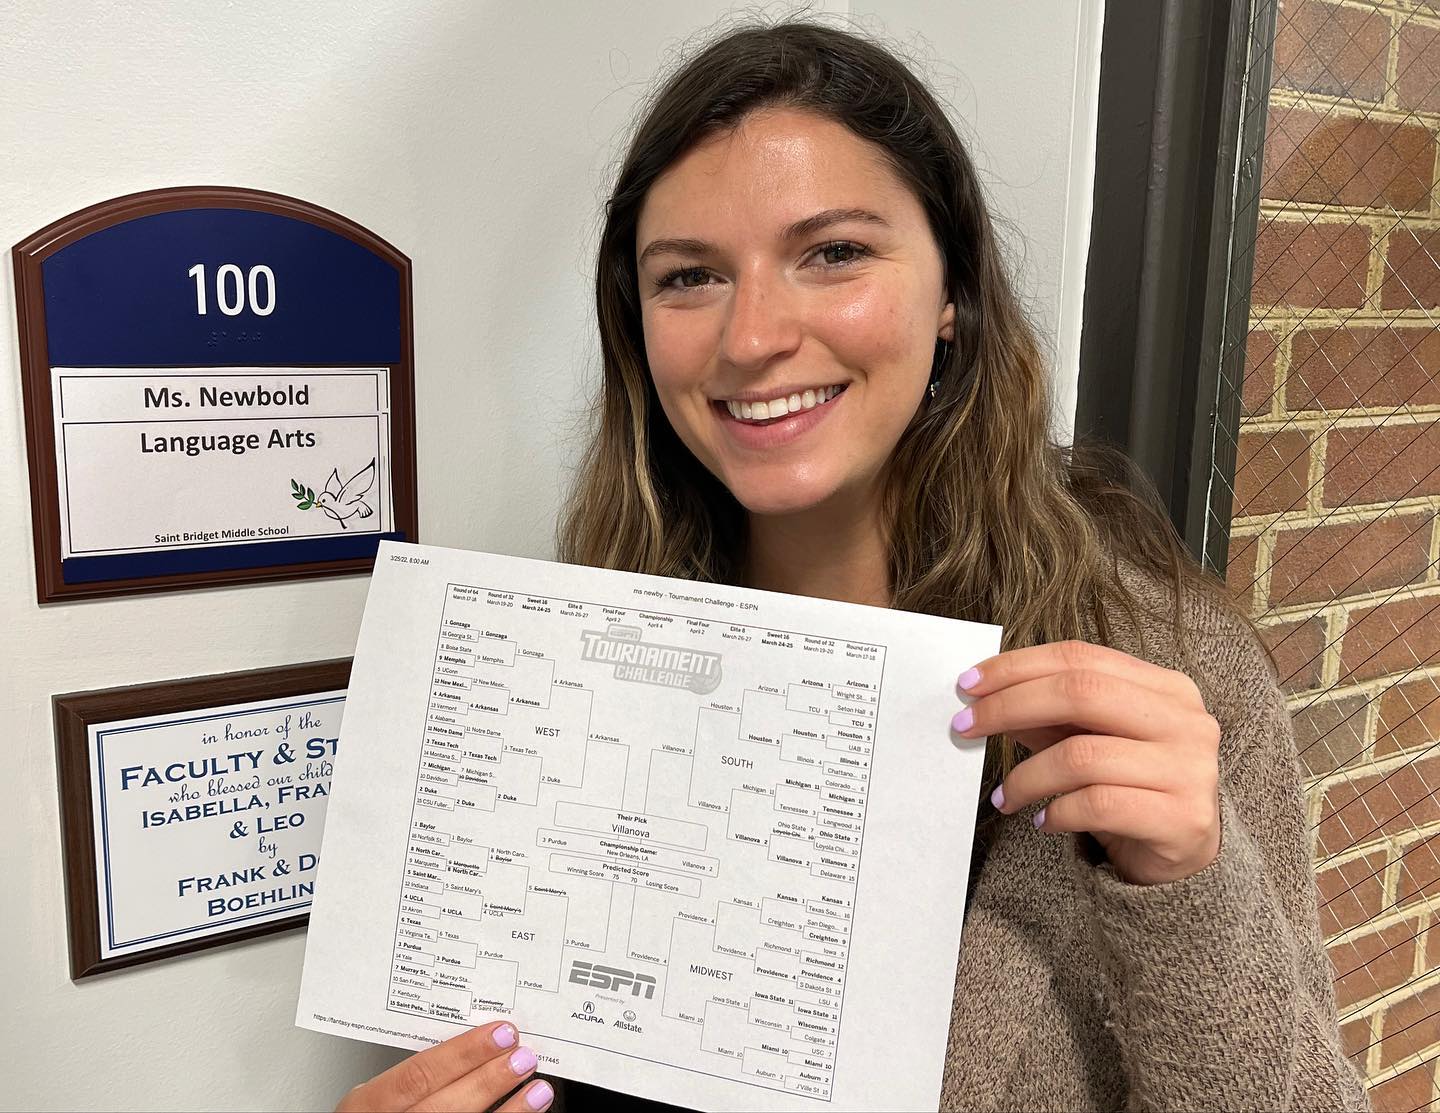 100
Ms. Newbold
Language Arts
Saint Bridget Middle School
in honor of the
FACULTY & ST
who blessed our child
ISABELLA, FRA
& LEO
by
FRANK & D
BOEHLIN
3/25/22, 8:00 AM
ms newby - Tournament Challenge - ESPN
Round of 64 Round of 32 Sweet 16 Elite 8 Final Four Championship Final Four Elite 8 Sweet 16 Round of 32 Round of 64
March 17-18 March 19-20 March 24-25 March 26-27 April 2 April 4 April 2 March 26-27 March 24-25 March 19-20 March 17-18
ESPN
TOURNAMENT
CHALLENGE
1 Gonzaga
16 Georgia St...
8 Boise State
9 Memphis
5 UConn
12 New Mexi...
4 Arkansas
13 Vermont
6 Alabama
11 Notre Dame
3 Texas Tech
14 Montana S...
7 Michigan ...
10 Davidson
2 Duke
15 CSU Fuller...
1 Gonzaga
9 Memphis
12 New Mexic...
4 Arkansas
11 Notre Dame
3 Texas Tech
7 Michigan S...
10 Davidson
2 Duke
1 Gonzaga
4 Arkansas
3 Texas Tech
2 Duke
4 Arkansas
2 Duke
4 Arkansas
WEST
1 Baylor
16 Norfolk St...
8 North Car...
9 Marquette
5 Saint Mar...
12 Indiana
4 UCLA
13 Akron
6 Texas
11 Virginia Te...
3 Purdue
14 Yale
7 Murray St...
10 San Franci...
2 Kentucky
15 Saint Pete...
1 Baylor
9 Marquette
8 North Car...
5 Saint Mary's
4 UCLA
6 Texas
3 Purdue
7 Murray Sta...
10 San Francis
2 Kentucky
15 Saint Pete...
8 North Caro...
1 Baylor
5 Saint Mary's
4 UCLA
3 Purdue
2 Kentucky
15 Saint Peter's
5 Saint Mary's
3 Purdue
3 Purdue
EAST
Their Pick
Villanova
3 Purdue
Championship Game:
New Orleans, LA
Villanova 2
Predicted Score
Winning Score 75 70 Losing Score
Arizona 1
Wright St... 16
Seton Hall 8
TCU 9
Houston 5
UAB 12
Illinois 4
Chattano... 13
Colorado ... 6
Michigan 11
Tennessee 3
Longwood 14
Ohio State 7
Loyola Chi... 10
Villanova 2
Delaware 15
Arizona 1
TCU 9
Houston 5
Illinois 4
Michigan 11
Tennessee 3
Ohio State 7
Loyola Chi... 10
Villanova 2
Arizona 1
Houston 5
Michigan 11
Villanova 2
Houston 5
Villanova 2
Villanova 2
SOUTH
Kansas 1
Texas Sou... 16
San Diego... 8
Creighton 9
Iowa 5
Richmond 12
Providence 4
S Dakota St 13
LSU 6
Iowa State 11
Wisconsin 3
Colgate 14
USC 7
Miami 10
Auburn 2
J'Ville St 15
Kansas 1
Creighton 9
Richmond 12
Providence 4
Iowa State 11
Wisconsin 3
Miami 10
Auburn 2
Kansas 1
Providence 4
Iowa State 11
Miami 10
Providence 4
Miami 10
Providence 4
MIDWEST
ESPN
Presented by
ACURA Allstate.
https://fantasy.espn.com/tournament-challenge-
1517445